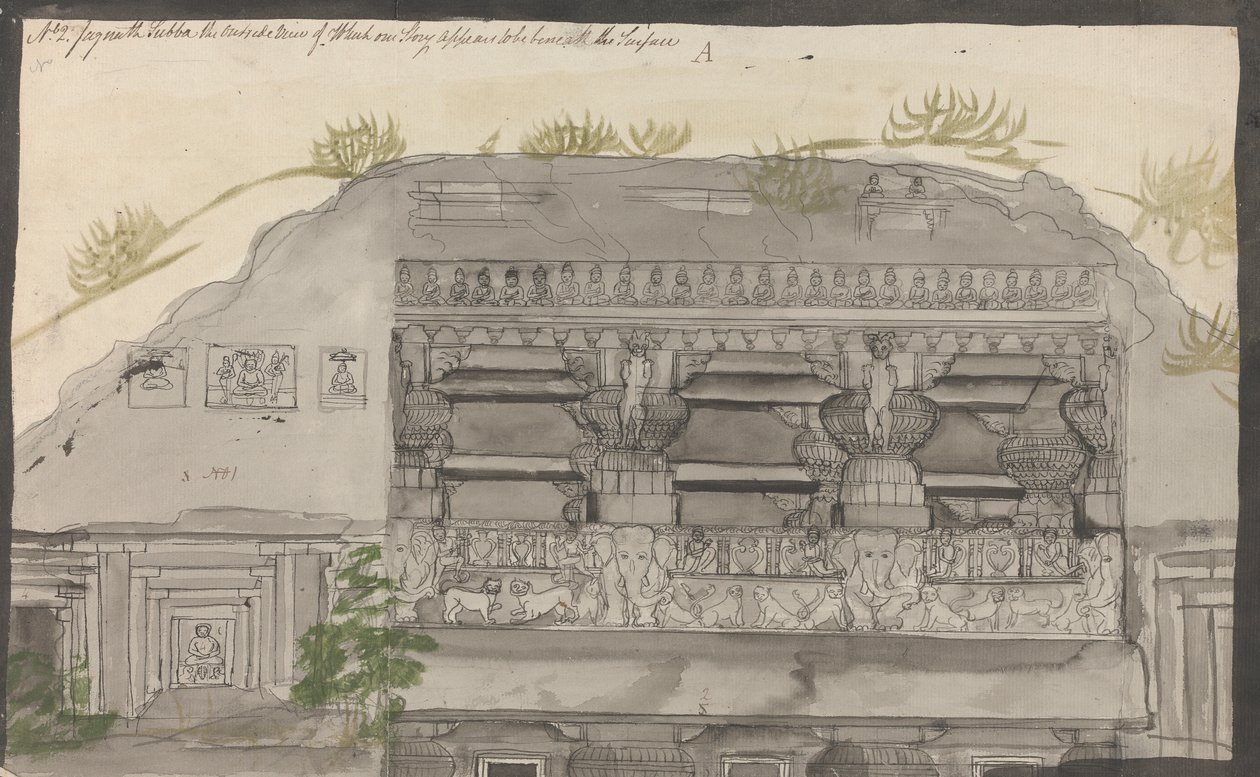 No. 2. Jagnath Subba the Outside View of Which one Story appears to be beneath the Surface
A
No 1
2